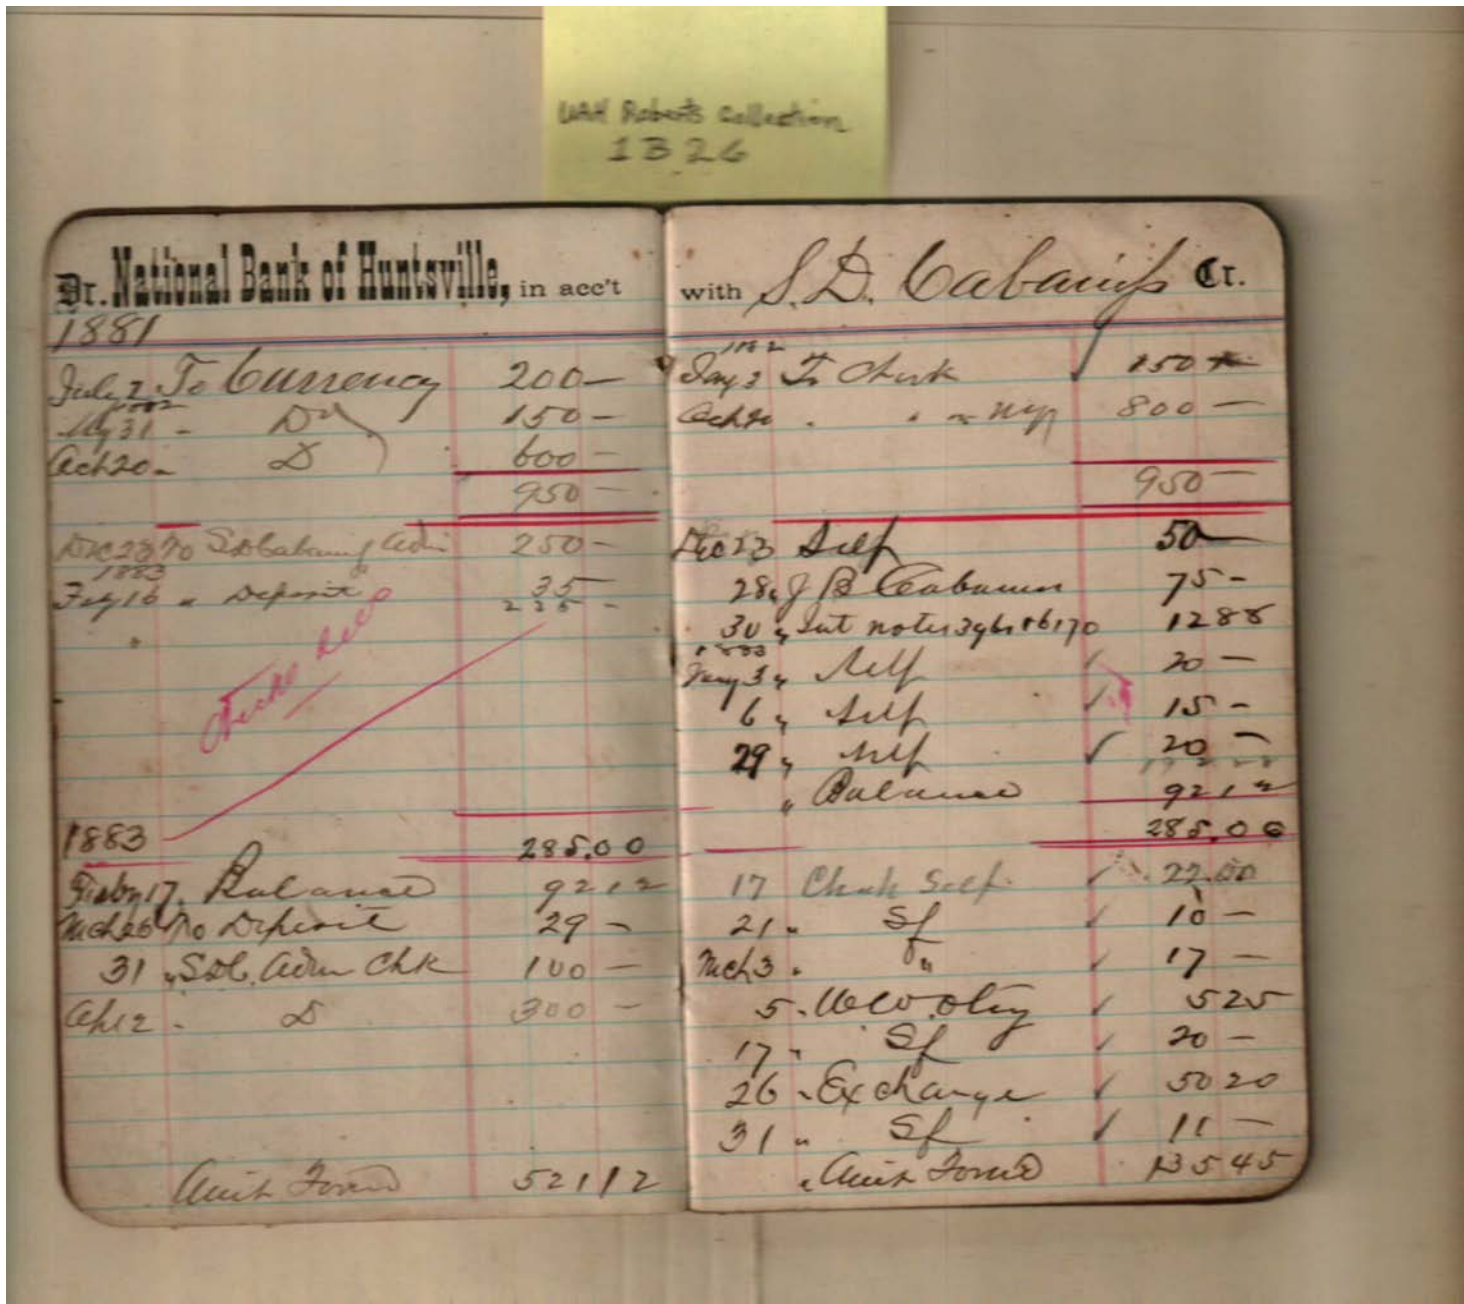 UAH Roberts Collection
1326
Dr. National Bank of Huntsville, in acc't
1881
July 2 To Currency 200—
1882
31 " Do 150—
Och 20 " D 600—
950—
Dec 23 To S D Cabaniss Adm 250—
1883
Feby 16 " Deposit 35
235 -
Checks Recd
1883
285.00
Feby 17. Balance 92 12
Mch 26 To Deposit 29 -
31 " SDC. Adm Chk 100 —
Ap 12 " D 300 —
Amt Forwd 521 12
with S. D. Cabaniss Cr.
1882
Jany 3 To Check 150
Och 20 " " 800 —
950 —
Dec 23 Self 50—
28 " J B Cabaniss 75 -
30 " Int notes 12 88
1883
Jany 3 " Self 20 —
6 " Self 15 -
29 " Self 20 —
" Balance 92 12
285.00
17 Check Self 22.00
21 " Sf 10 —
Mch 3 " " 17 —
5 " 5 25
17 " Sf 20 —
26 " Exchange 50 20
31 " Sf 11 —
" Amt Forwd 135 45